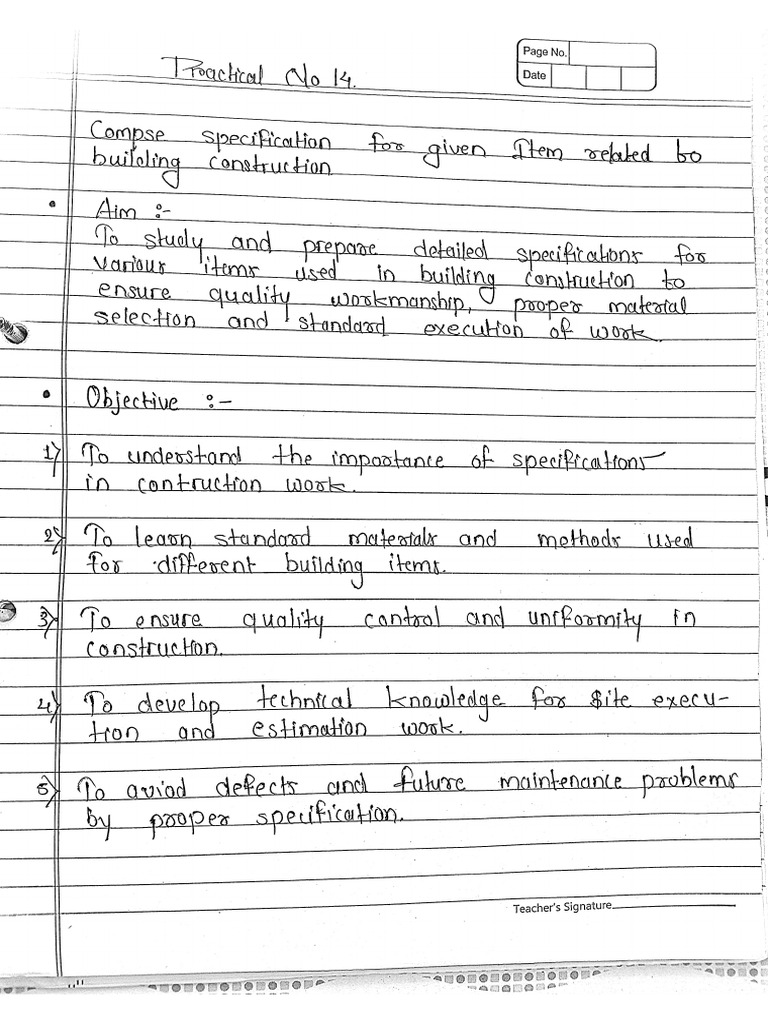 Page No.
Date
Practical No 14.
Compse specification for given Item related to
building construction
• Aim :-
To study and prepare detailed specifications for
various items used in building construction to
ensure quality workmanship, proper material
selection and standard execution of work.
• Objective :-
1) To understand the importance of specifications
in contruction work.
2) To learn standard materials and methods used
for different building items.
3) To ensure quality control and uniformity in
construction.
4) To develop technical knowledge for site execu-
tion and estimation work.
5) To aviod defects and future maintenance problems
by proper specification.
Teacher's Signature